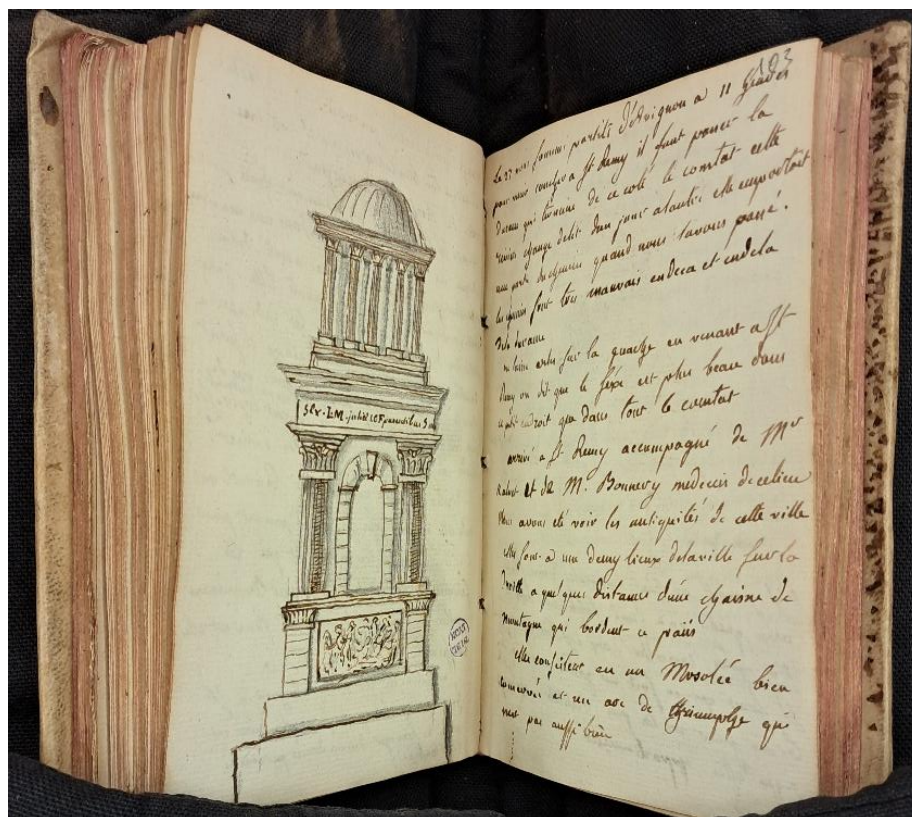 Sex. L.M. juliei C.F. parentibus Suis
103
Le 27 nous sommes partits d'Avignon a 11
pour nous rendre a St Remy il faut passer la
durance qui termine de ce coté le comtat cette
riviere change delit dun jour alautre elle emportoit
une partie du chemin quand nous lavons passé.
les chemins sont tres mauvais endeca et endela
dela durance
sur la en venant a St
Remy on dit que le sexe est plus beau dans
ce petit endroit que dans tout le comtat
arrivé a St Remy accompagné de Mr
et de M. Bonnery medecin de celieu
Nous avons eté voir les antiquités de cette ville
elle sont a une demy lieux delaville sur la
droitte a quelques distance dune chaisne de
montagne qui bordent ce païis
elle consistent en un Mosolée bien
conservé et un arc de thriumphe qui
nest pas aussi bien